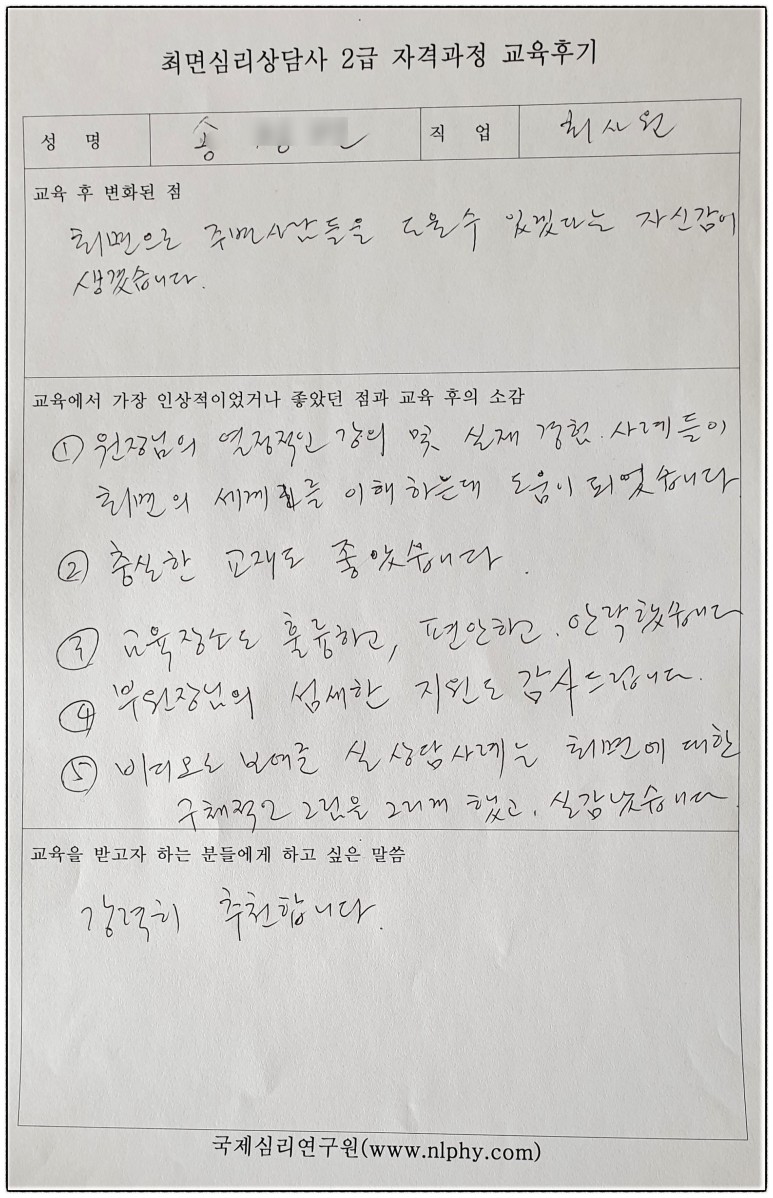 최면심리상담사 2급 자격과정 교육후기
성 명 송 직 업 회사원
교육 후 변화된 점
최면으로 주변사람들을 도울수 있겠다는 자신감이
생겼습니다.
교육에서 가장 인상적이었거나 좋았던 점과 교육 후의 소감
① 원장님의 열정적인 강의 및 실재 경험. 사례들이
최면의 세계를 이해하는데 도움이 되었습니다
② 충실한 교재도 좋았습니다.
③ 교육장소도 훌륭하고, 편안하고. 안락했습니다
④ 부원장님의 섬세한 지원도 감사드립니다.
⑤ 비디오로 보여준 실상담사례는 최면에 대한
구체적인 그림을 그리게 했고, 실감났습니다.
교육을 받고자 하는 분들에게 하고 싶은 말씀
강력히 추천합니다.
국제심리연구원(www.nlphy.com)